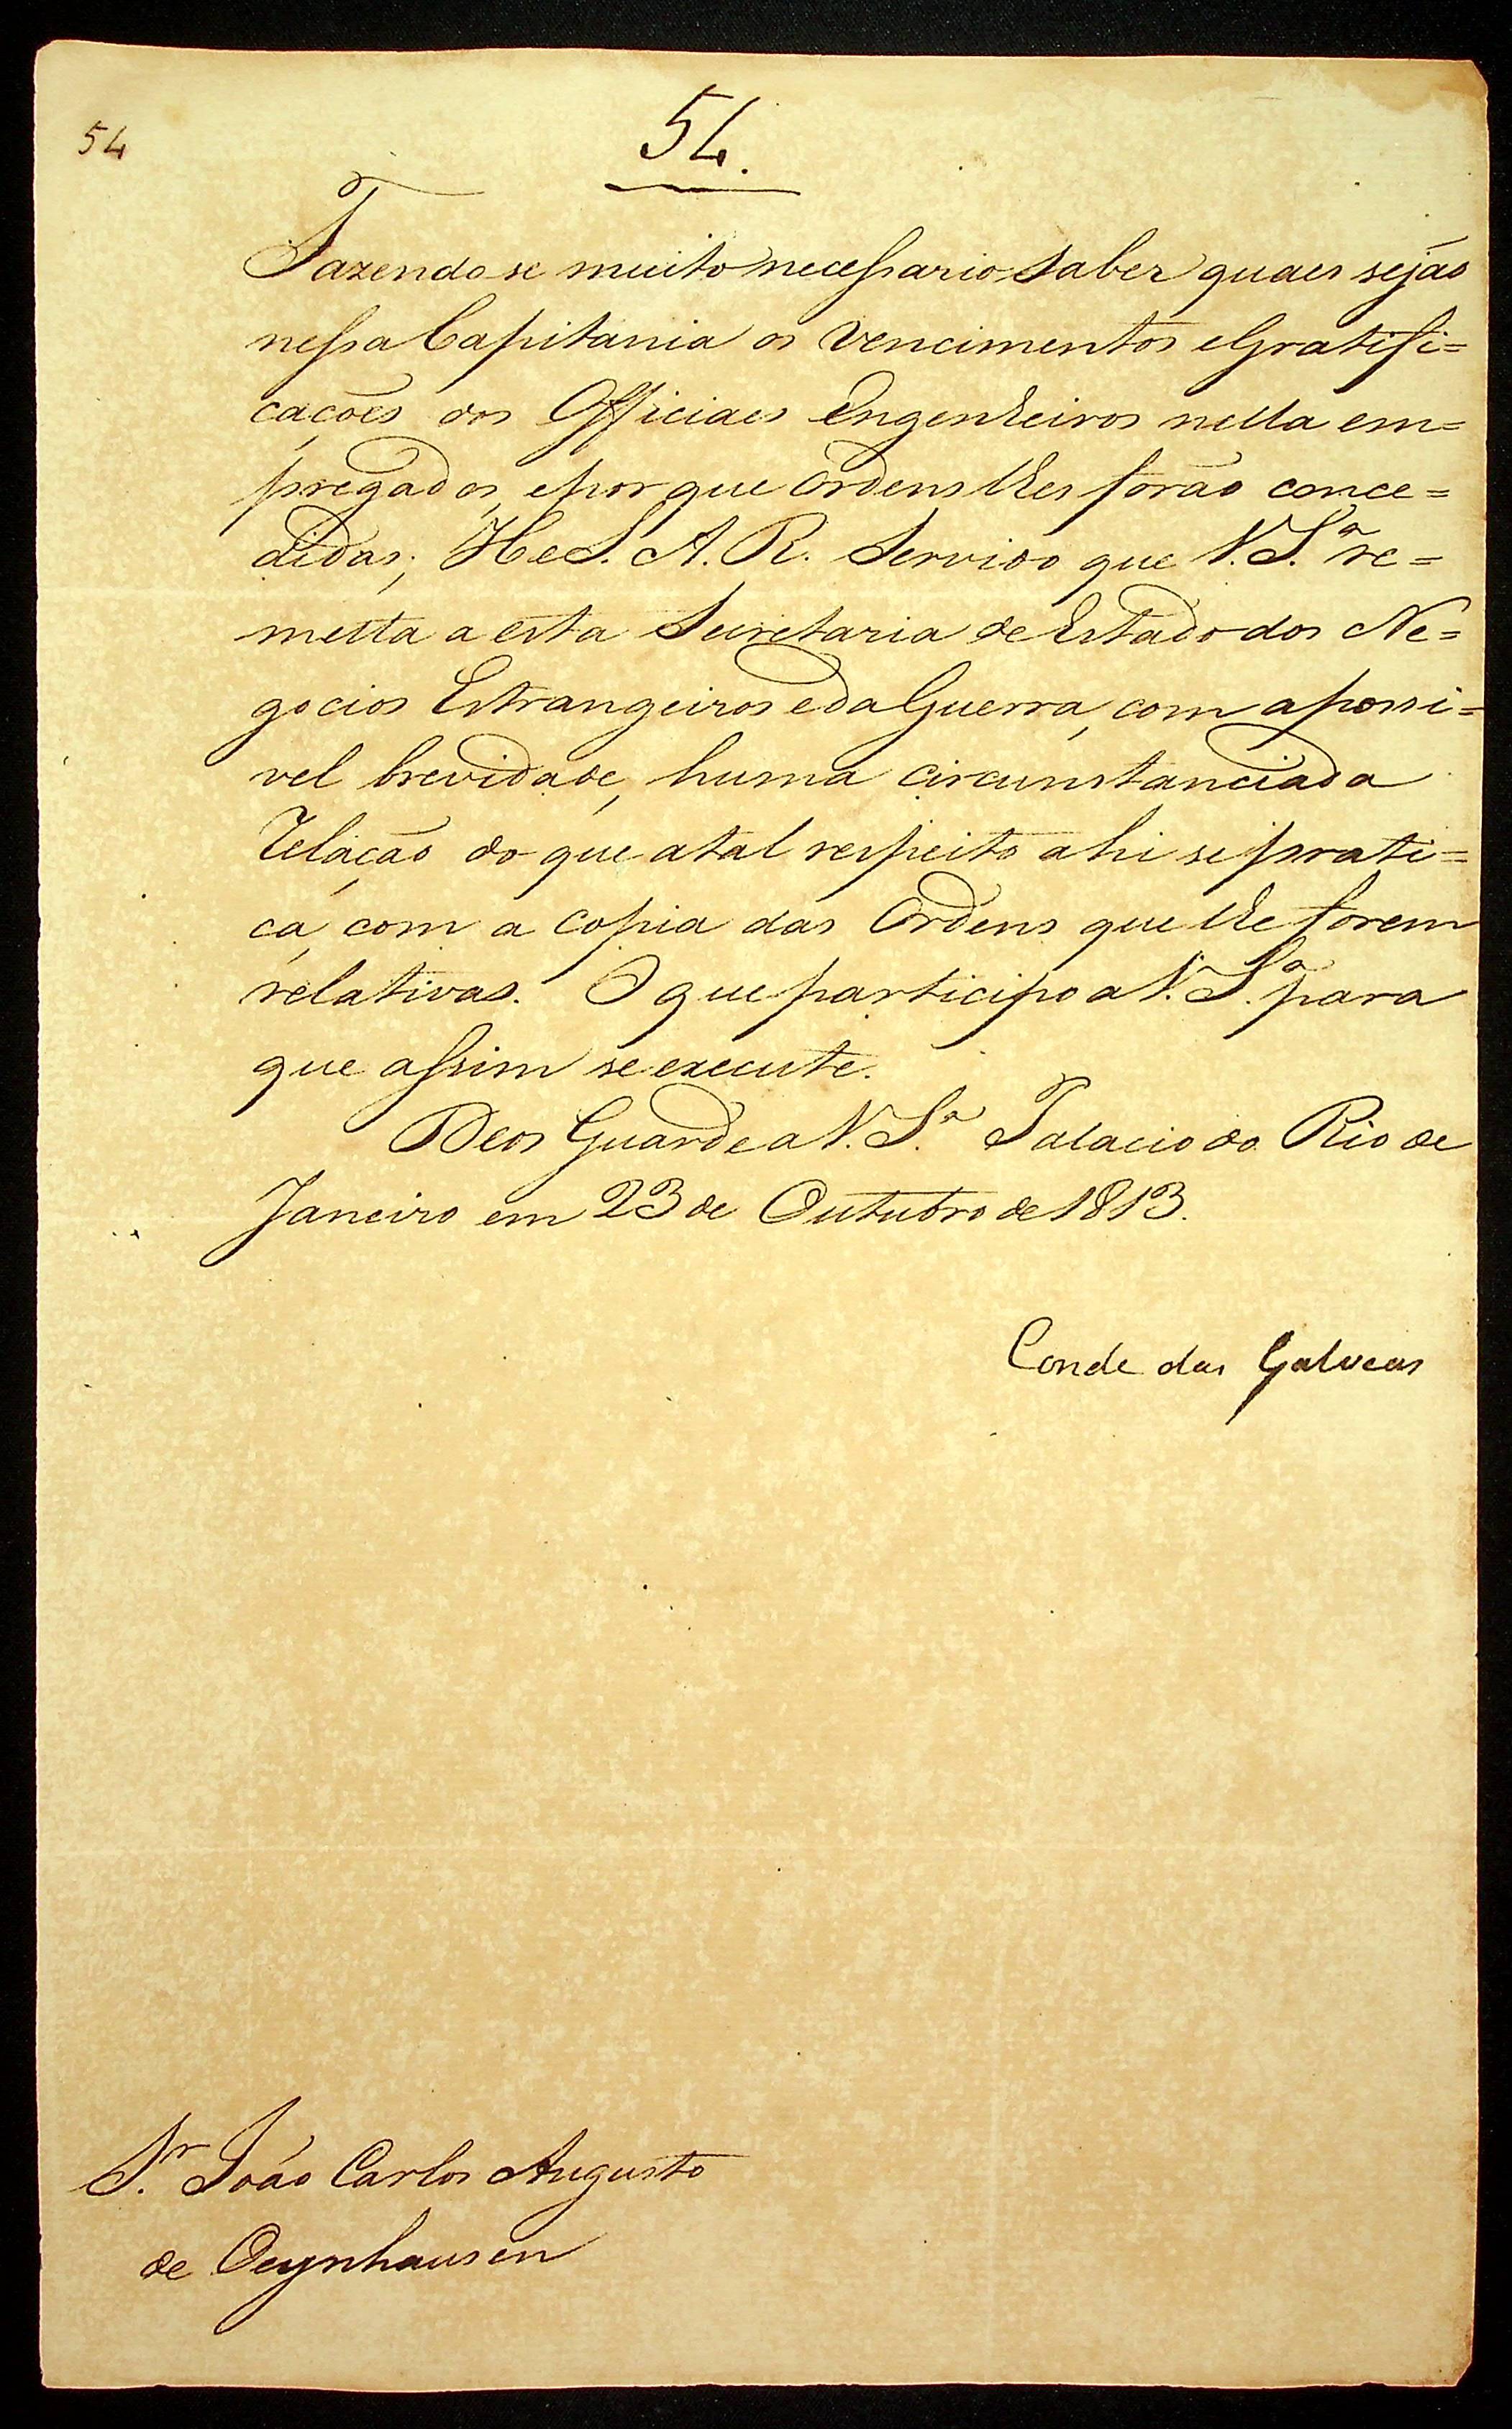 54
54.
Fazendo se muito necessario saber quaes sejão
nessa Capitania os vencimentos e Gratifi=
cações dos Officiaes Engenheiros nella em=
pregados, e por que ordens lhes forão conce=
didas; He S. A. R. Servido que V. S.ª re=
metta a esta Secretaria de Estado dos Ne=
gocios Estrangeiros e da Guerra, com a possi=
vel brevidade, huma circunstanciada
Relação do que a tal respeito ahi se prati=
ca, com a copia das Ordens que lhe forem
relativas. O que participo a V. S.ª para
que assim se execute.
Deos Guarde a V. S.ª Palacio do Rio de
Janeiro em 23 de Outubro de 1813.
Conde das Galveas
S.r João Carlos Augusto
de Oeynhausen